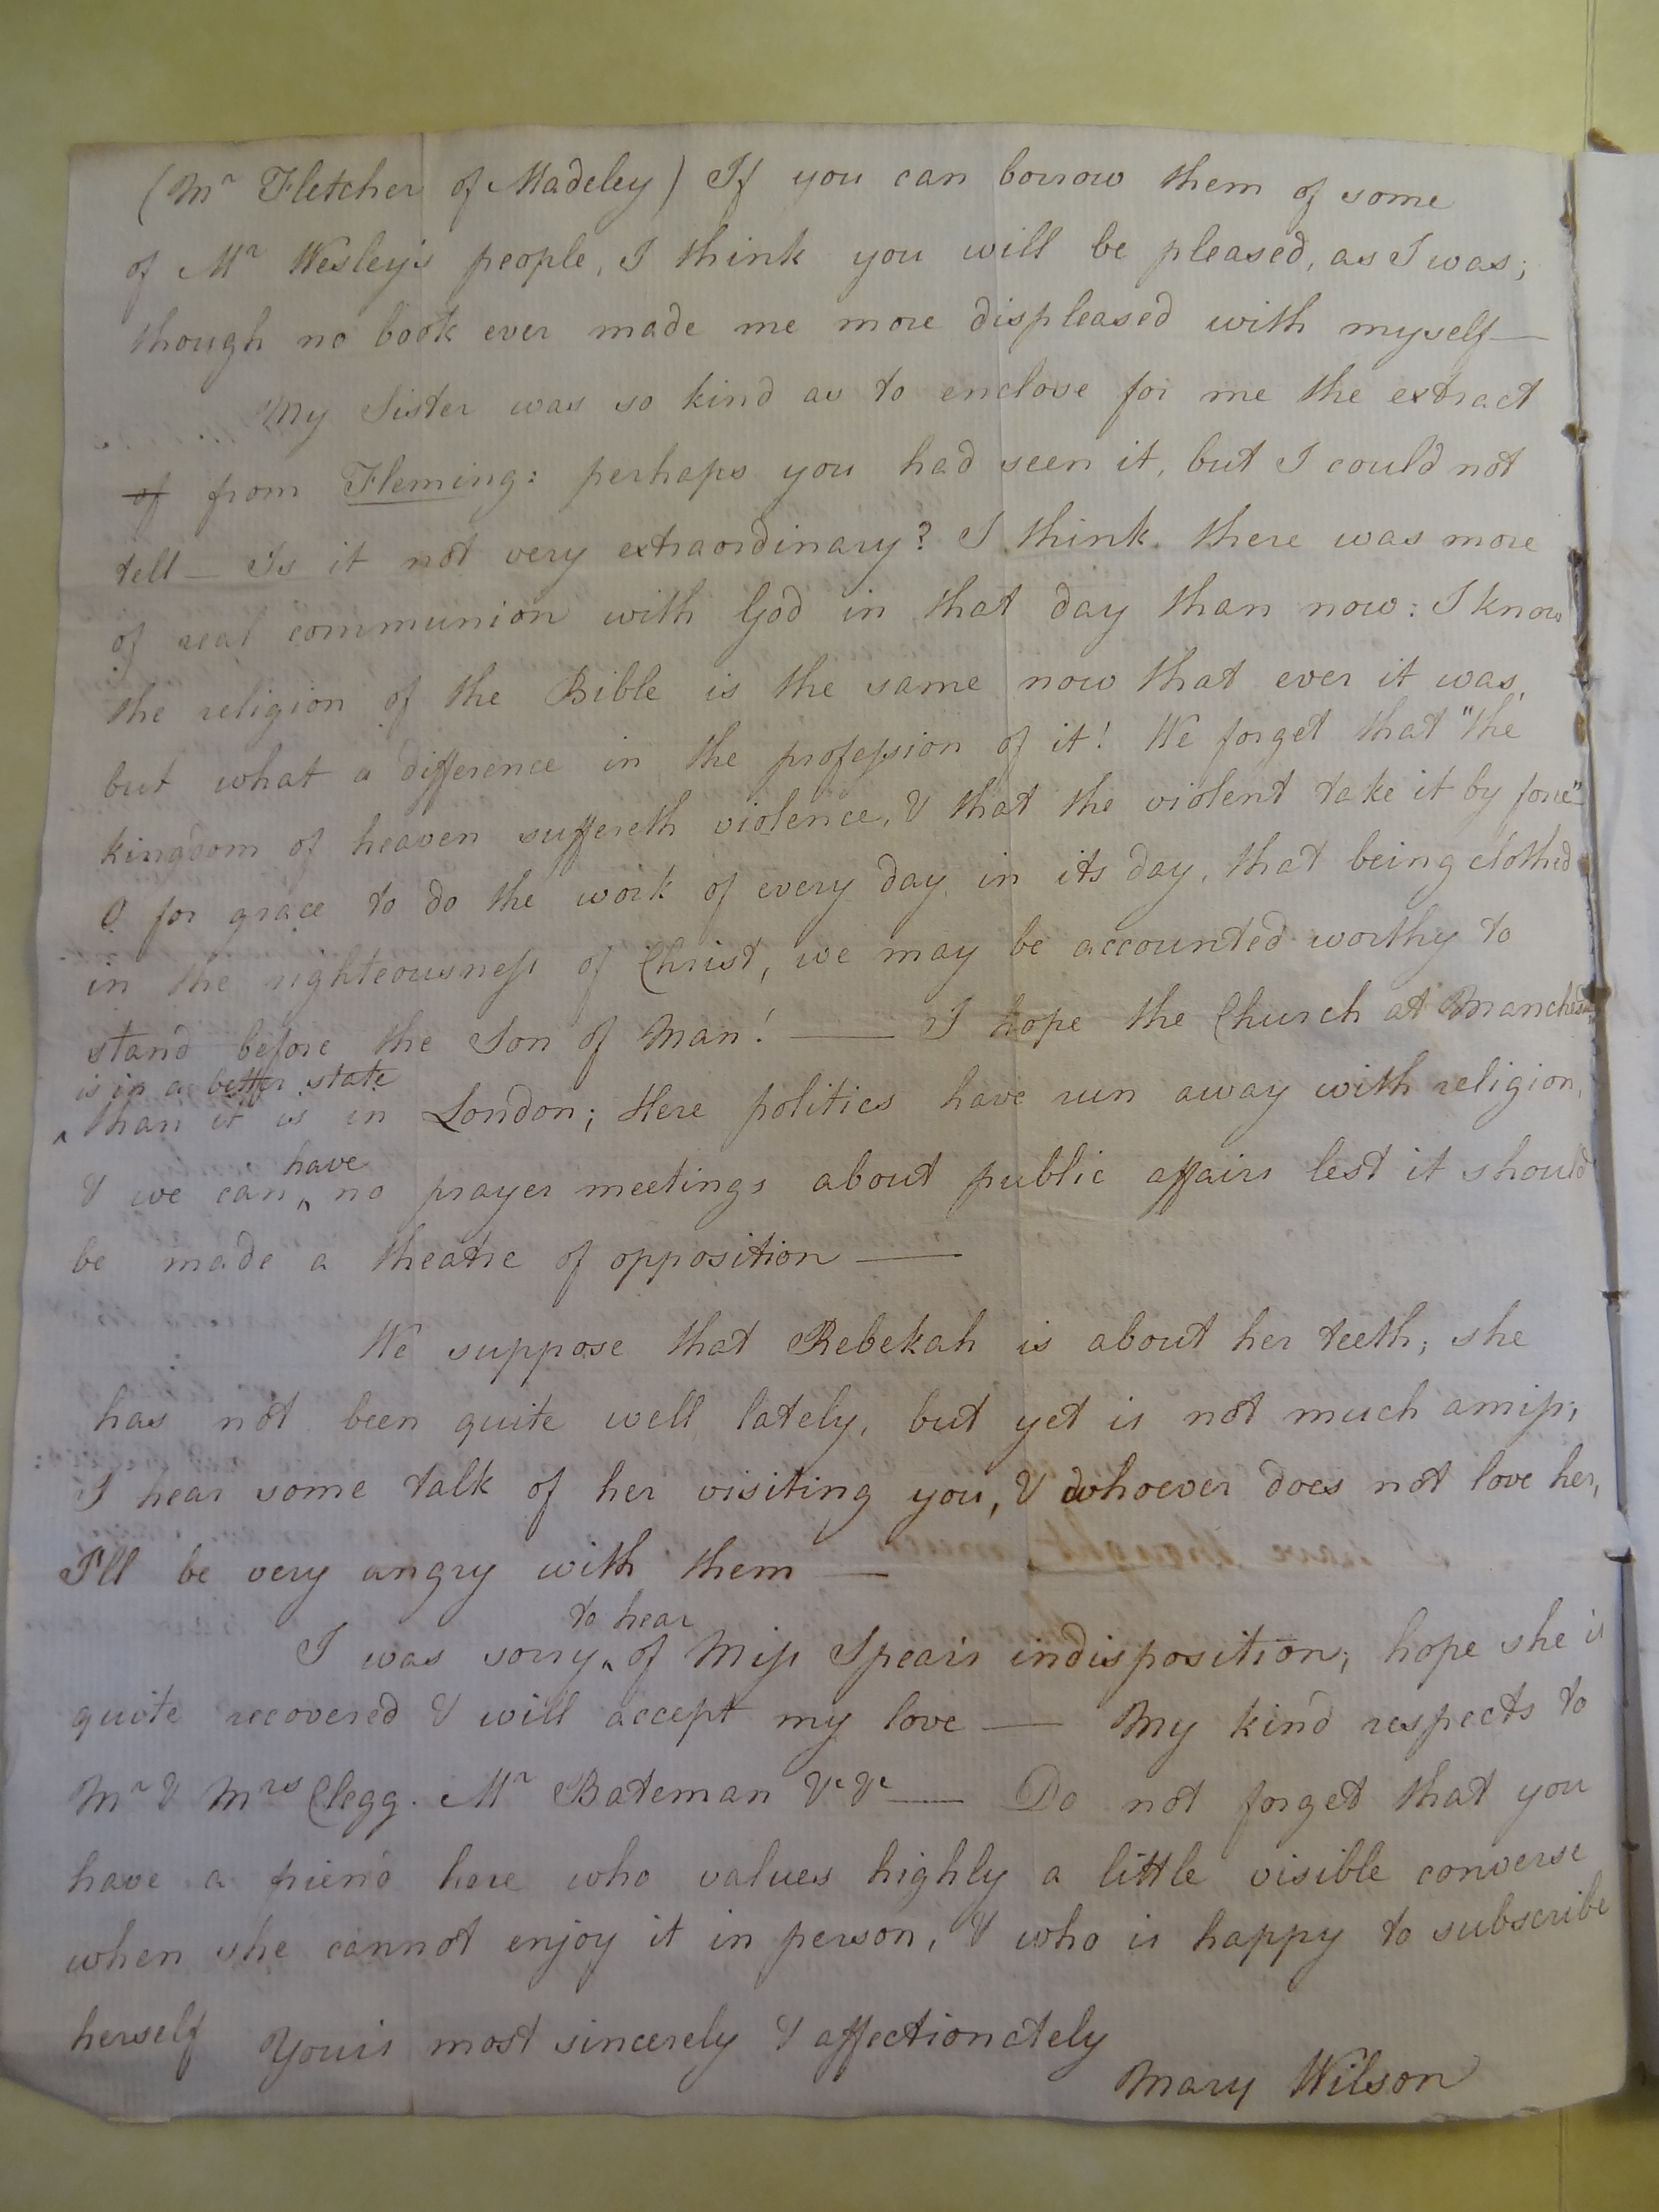 (Mr Fletcher of Madeley) If you can borrow them of some
of Mr Wesley's people, I think you will be pleased, as I was;
though no book ever made me more displeased with myself—
My Sister was so kind as to enclose for me the extract
of from Fleming: perhaps you had seen it, but I could not
tell — Is it not very extraordinary? I think there was more
of real communion with God in that day than now: I know
the religion of the Bible is the same now that ever it was,
but what a difference in the profession of it! We forget that "the
kingdom of heaven suffereth violence, & that the violent take it by force"
O for grace to do the work of every day in its day, that being clothed
in the righteousness of Christ, we may be accounted worthy to
stand before the Son of Man! — I hope the Church at Manchester
is in a better state
^ than it is in London; Here politics have run away with religion,
have
& we can ^ no prayer meetings about public affairs lest it should
be made a theatre of opposition —
We suppose that Rebekah is about her teeth; she
has not been quite well lately, but yet is not much amiss;
I hear some talk of her visiting you, & whoever does not love her,
I'll be very angry with them —
to hear
I was sorry ^ of Miss Spear's indisposition; hope she is
quite recovered & will accept my love — My kind respects to
Mr & Mrs Clegg. Mr Bateman &c &c — Do not forget that you
have a friend here who values highly a little visible converse
when she cannot enjoy it in person, & who is happy to subscribe
herself Yours most sincerely & affectionately
Mary Wilson